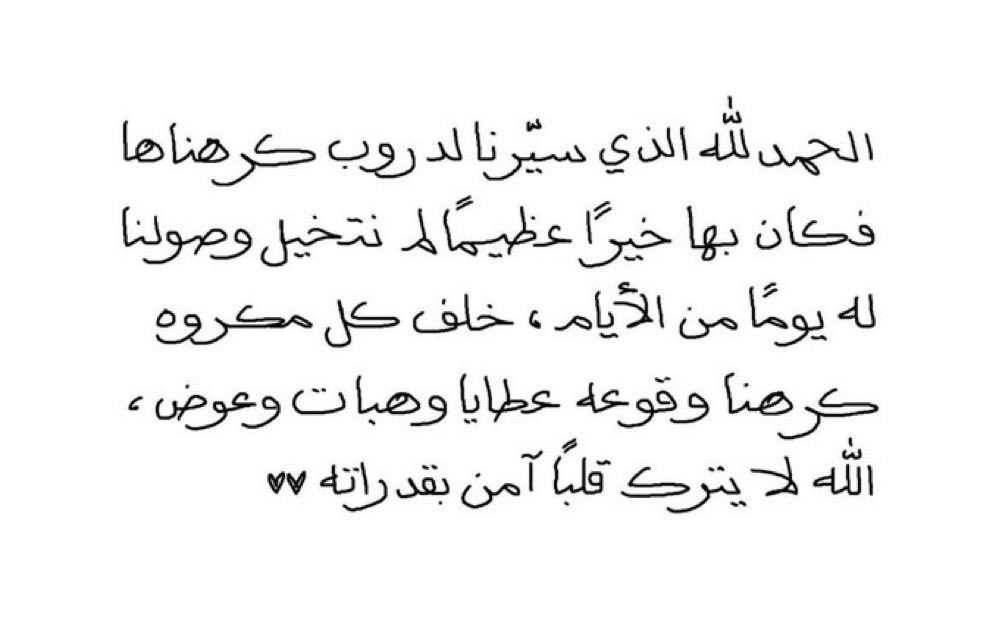 الحمدلله الذي سيّرنا لدروب كرهناها
فكان بها خيرًا عظيمًا لم نتخيل وصولنا
له يومًا من الأيام ، خلف كل مكروه
كرهنا وقوعه عطايا وهبات وعوض ،
الله لا يترك قلبًا آمن بقدراته ♥♥